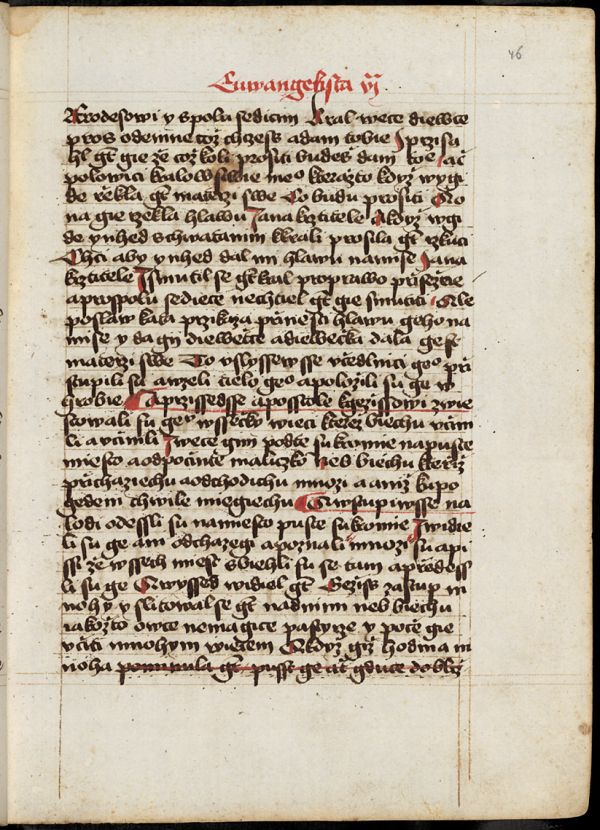 46
Euwangelista vj
Krodesowi y spolu sediciim Kral wece diewcze
pros odemne coz chczess adam tobie J przisa
hl gt gie ze coz koli prositi budes dam tobie ac
polowici kralowstwie meo kterazto kdyz wygi
de rzekla gt materzi swe Co budu prositi Ao
na gie rzekla hlawu Jana krztitele Akdyz wgi
de ynhed schwatanim kkrali prosila gt rzkuci
Chci aby ynhed dal mi hlawu namise Jana
krztitele J smutil se gt kral proprawo przisezie
aprospolu sediece nechtiel gt gie smutiti Ale
poslaw kata przikaza przinesti hlawu geho na
mise y da gij diewecce adiewecka dala ge se
materzi swe To vslyssewsse vczedlnici geo przi
stupili su awzeli tielo geo apolozili su ge w
hrobie Aprzissedsse apostole kgezissowi zwie
stowali su gey wssecky wieci kterez biechu vczini
li avczinili J wece gim podte sukromie napuste
miesto aodpoczinte maliczko neb biechu kterziz
przichaziechu aodchodichu mnozi aaniz kupo
gedeni chwile miegiechu Awstupiwsse na
lodi odessli su namiesto puste sukromie J widie
li su ge ani odchazegi apoznali mnozi su api
ssi ze wssech miest sbiehli su se tam aprzedess
li su ge Awyssed widiel gt Geziss zastup m
nohy y slitowal se gt nadnimi neb biechu
iakozto owce nemagice pastyrze y pocze gie
vcziti mnohym wieczem Akdyz giz hodina m
noha pominula gt pusst ge at gduce do bliz